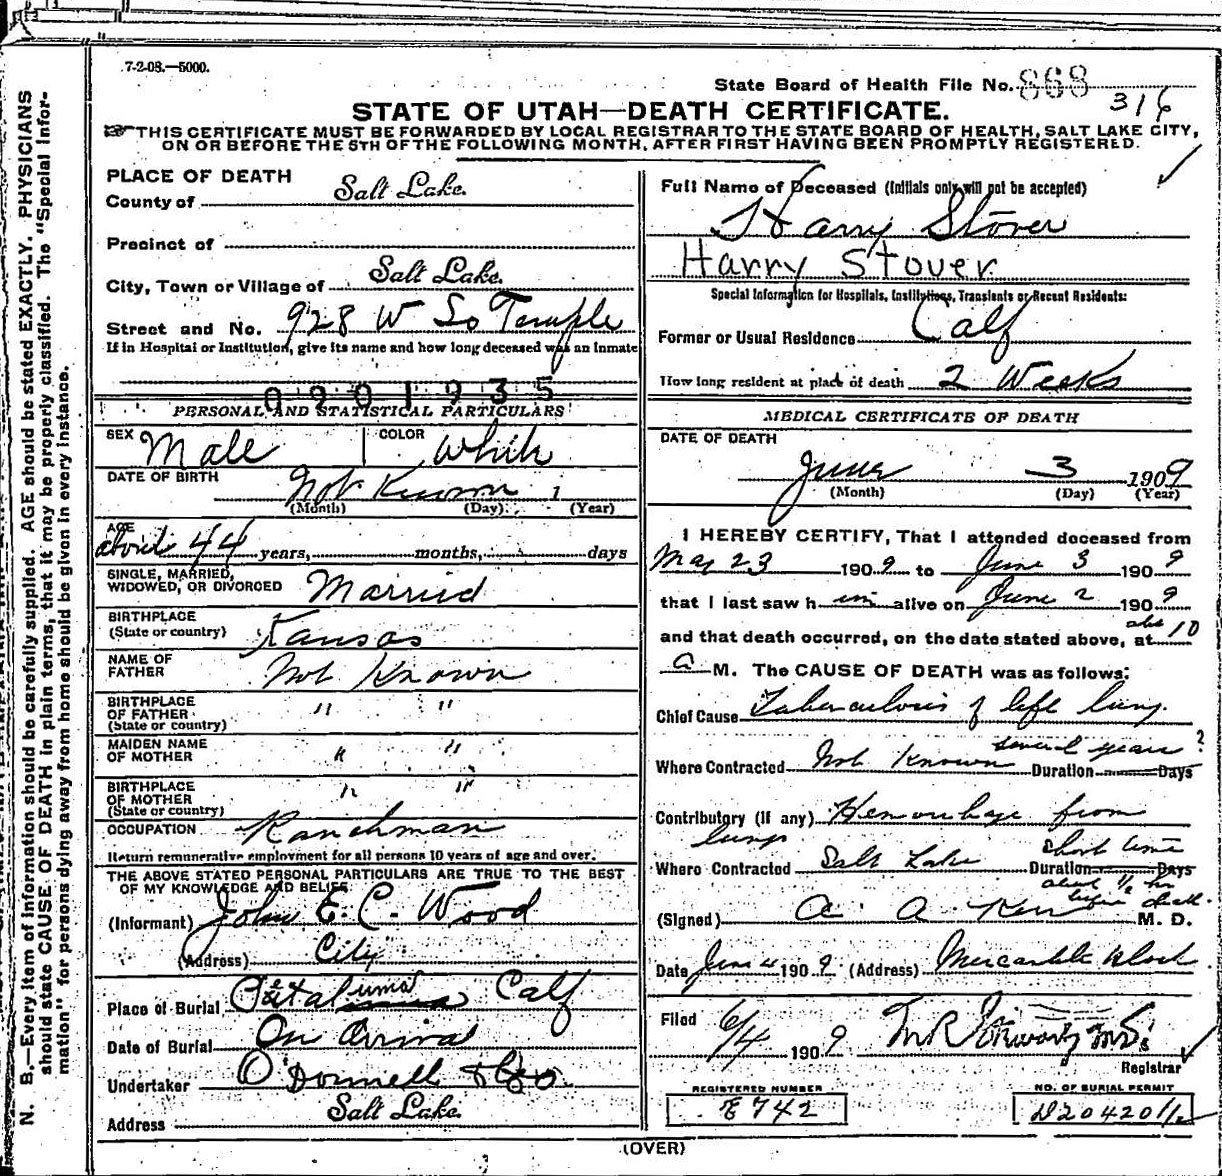 7-2-08.—5000.
State Board of Health File No. 868
316
STATE OF UTAH—DEATH CERTIFICATE.
THIS CERTIFICATE MUST BE FORWARDED BY LOCAL REGISTRAR TO THE STATE BOARD OF HEALTH, SALT LAKE CITY,
ON OR BEFORE THE 5TH OF THE FOLLOWING MONTH, AFTER FIRST HAVING BEEN PROMPTLY REGISTERED.
N. B.—Every item of information should be carefully supplied. AGE should be stated EXACTLY. PHYSICIANS
should state CAUSE OF DEATH in plain terms, that it may be properly classified. The "Special Infor-
mation" for persons dying away from home should be given in every instance.
PLACE OF DEATH
County of Salt Lake.
Precinct of
City, Town or Village of Salt Lake.
Street and No. 928 W So Temple
If in Hospital or Institution, give its name and how long deceased was an inmate
0201935
PERSONAL AND STATISTICAL PARTICULARS
SEX Male COLOR White
DATE OF BIRTH Not Known 1
(Month) (Day) (Year)
AGE
about 44 years, months, days
SINGLE, MARRIED,
WIDOWED, OR DIVORCED Married
BIRTHPLACE
(State or country) Kansas
NAME OF
FATHER Not Known
BIRTHPLACE
OF FATHER " "
(State or country)
MAIDEN NAME
OF MOTHER " "
BIRTHPLACE
OF MOTHER " "
(State or country)
OCCUPATION Ranchman
Return remunerative employment for all persons 10 years of age and over.
THE ABOVE STATED PERSONAL PARTICULARS ARE TRUE TO THE BEST
OF MY KNOWLEDGE AND BELIEF
(Informant) John E. C. Wood
(Address) City
Place of Burial Petaluma Calf
Date of Burial On Arrival
Undertaker O'Donnell & Co.
Address Salt Lake.
Full Name of Deceased (Initials only will not be accepted)
Harry Stover
Harry Stover
Special Information for Hospitals, Institutions, Transients or Recent Residents:
Former or Usual Residence Calf
How long resident at place of death 2 Weeks
MEDICAL CERTIFICATE OF DEATH
DATE OF DEATH
June 3 1909
(Month) (Day) (Year)
I HEREBY CERTIFY, That I attended deceased from
May 23 1909 to June 3 1909
that I last saw him alive on June 2 1909
and that death occurred, on the date stated above, at abt 10
a M. The CAUSE OF DEATH was as follows:
Chief Cause Tuberculosis of left lung.
several years?
Where Contracted Not Known Duration Days
Contributory (if any) Hemorrhage from
lungs short time
Where Contracted Salt Lake Duration Days
about 1/2 hr
before death.
(Signed) A. A. Kerr M. D.
Date June 4 1909 (Address) Mercantile Block
Filed 6/4 1909
Registrar
REGISTERED NUMBER
E742
NO. OF BURIAL PERMIT
D20420 1/2
(OVER)